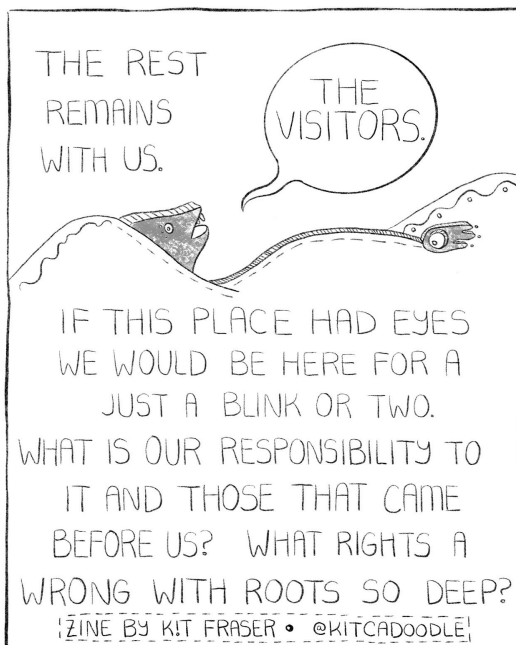 THE REST
REMAINS
WITH US.
THE
VISITORS.
IF THIS PLACE HAD EYES
WE WOULD BE HERE FOR A
JUST A BLINK OR TWO.
WHAT IS OUR RESPONSIBILITY TO
IT AND THOSE THAT CAME
BEFORE US? WHAT RIGHTS A
WRONG WITH ROOTS SO DEEP?
ZINE BY K!T FRASER • @KITCADOODLE